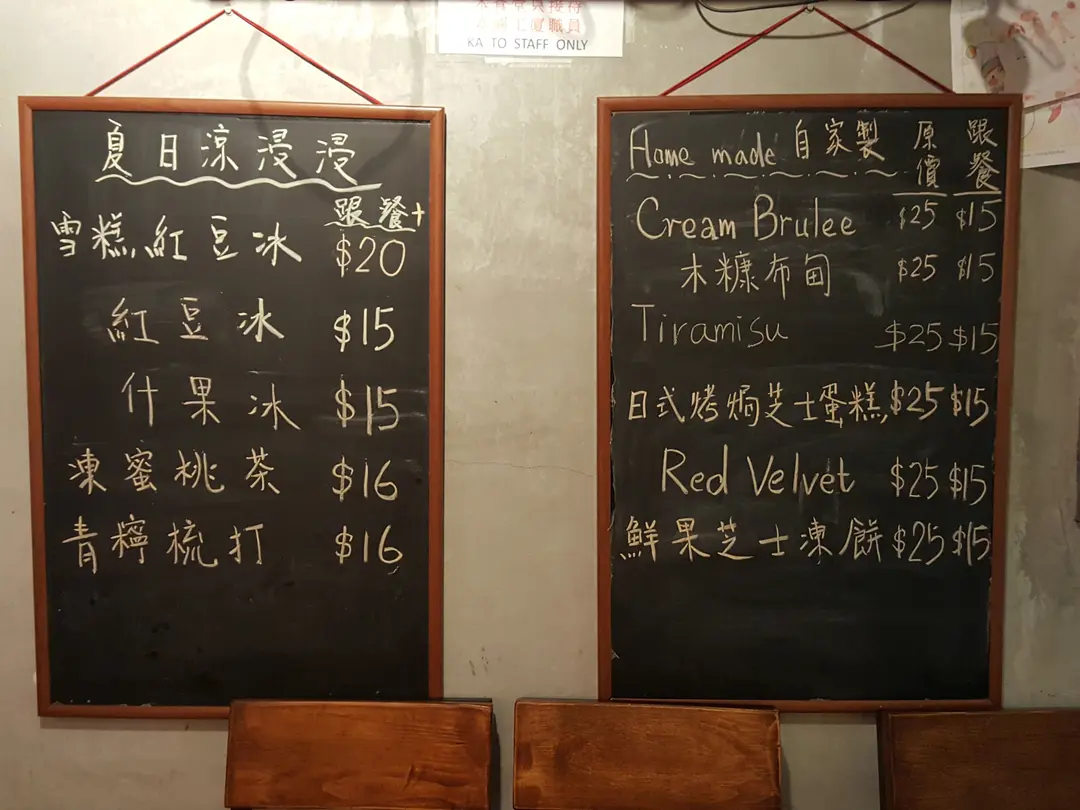 KA TO STAFF ONLY
夏日涼浸浸
跟餐+
雪糕紅豆冰 $20
紅豆冰 $15
什果冰 $15
凍蜜桃茶 $16
青檸梳打 $16
Home made 自家製 原價 跟餐
Cream Brulee $25 $15
木糠布甸 $25 $15
Tiramisu $25 $15
日式烤焗芝士蛋糕 $25 $15
Red Velvet $25 $15
鮮果芝士凍餅 $25 $15